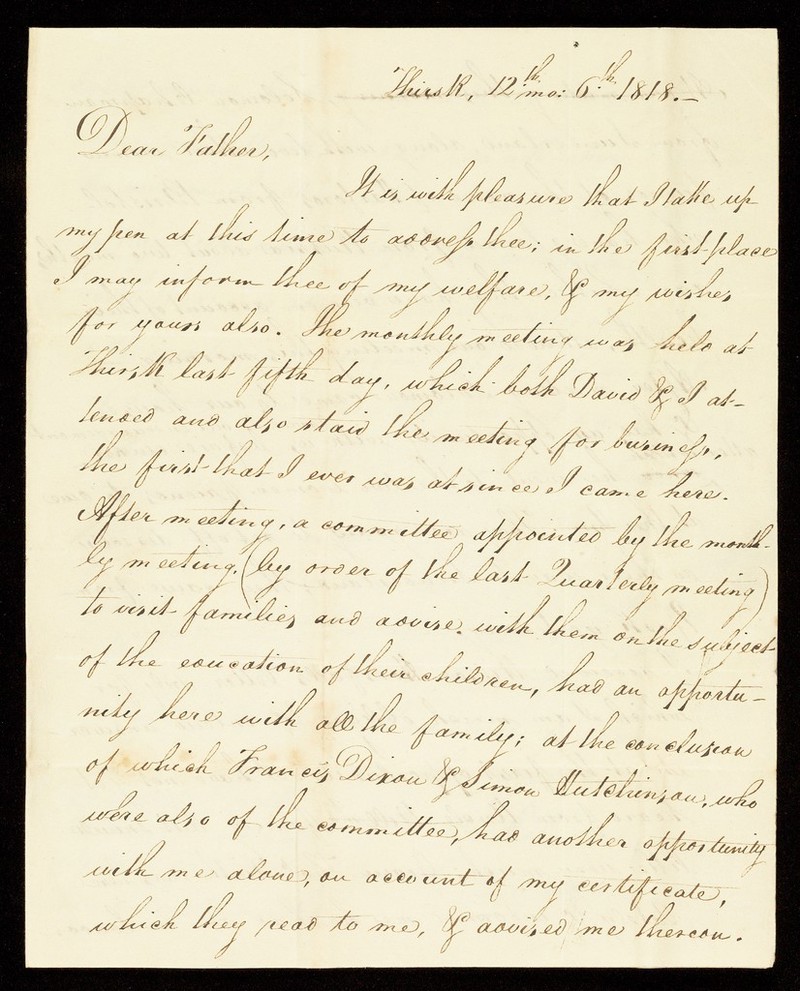 Thirsk, 12th. mo: 6th. 1818.—
Dear Father,
It is with pleasure that I take up
my pen at this time to address thee; in the first place
I may inform thee of my welfare, & my wishes
for yours also. The monthly meeting was held at
Thirsk last fifth day, which both David & I at-
tended and also staid the meeting for business,
the first that I ever was at since I came here.
After meeting, a committee appointed by the month-
ly meeting, (by order of the last Quarterly meeting)
to visit families and advise with them on the subject
of the education of their children, had an opportu-
nity here with all the family; at the conclusion
of which Francis Dixon & Simon Hutchinson, who
were also of the committee, had another opportunity
with me alone, on account of my certificate,
which they read to me, & advised me thereon.